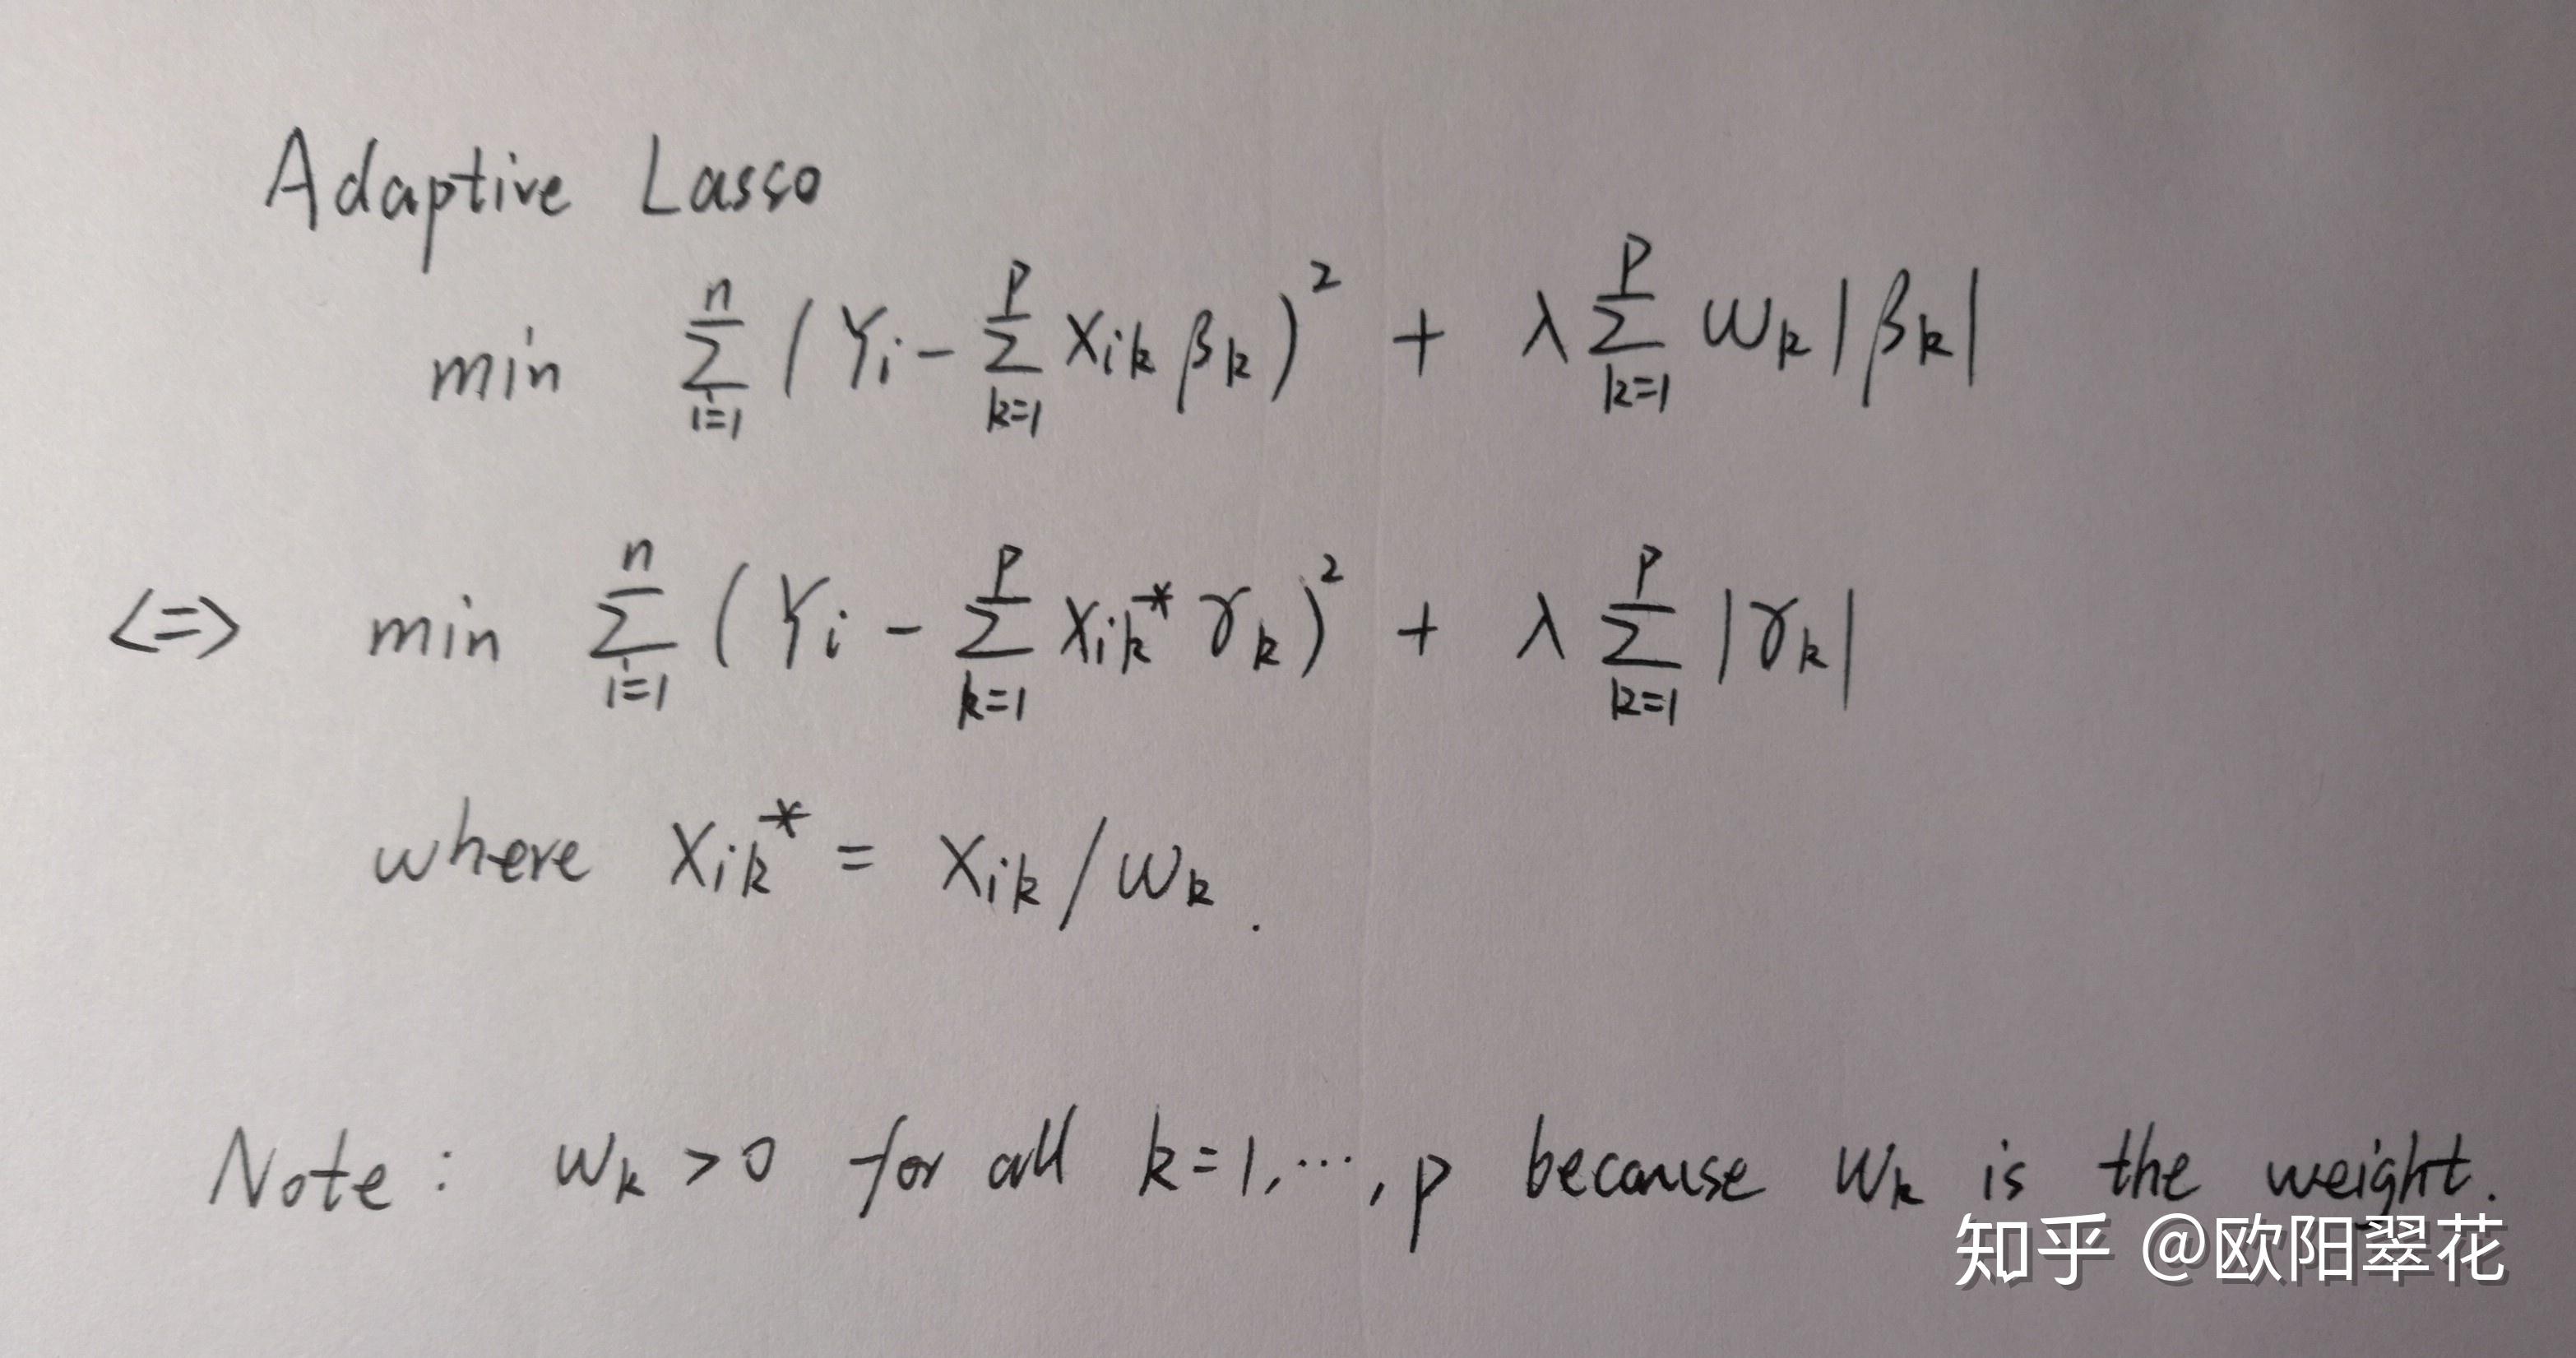 Adaptive Lasso
min ∑_{i=1}^{n} (Y_i − ∑_{k=1}^{p} X_{ik} β_k)² + λ ∑_{k=1}^{p} w_k |β_k|
<=> min ∑_{i=1}^{n} (Y_i − ∑_{k=1}^{p} X_{ik}^* γ_k)² + λ ∑_{k=1}^{p} |γ_k|
where X_{ik}^* = X_{ik} / w_k .
Note: w_k > 0 for all k=1,⋯,p because w_k is the weight.
知乎 @欧阳翠花